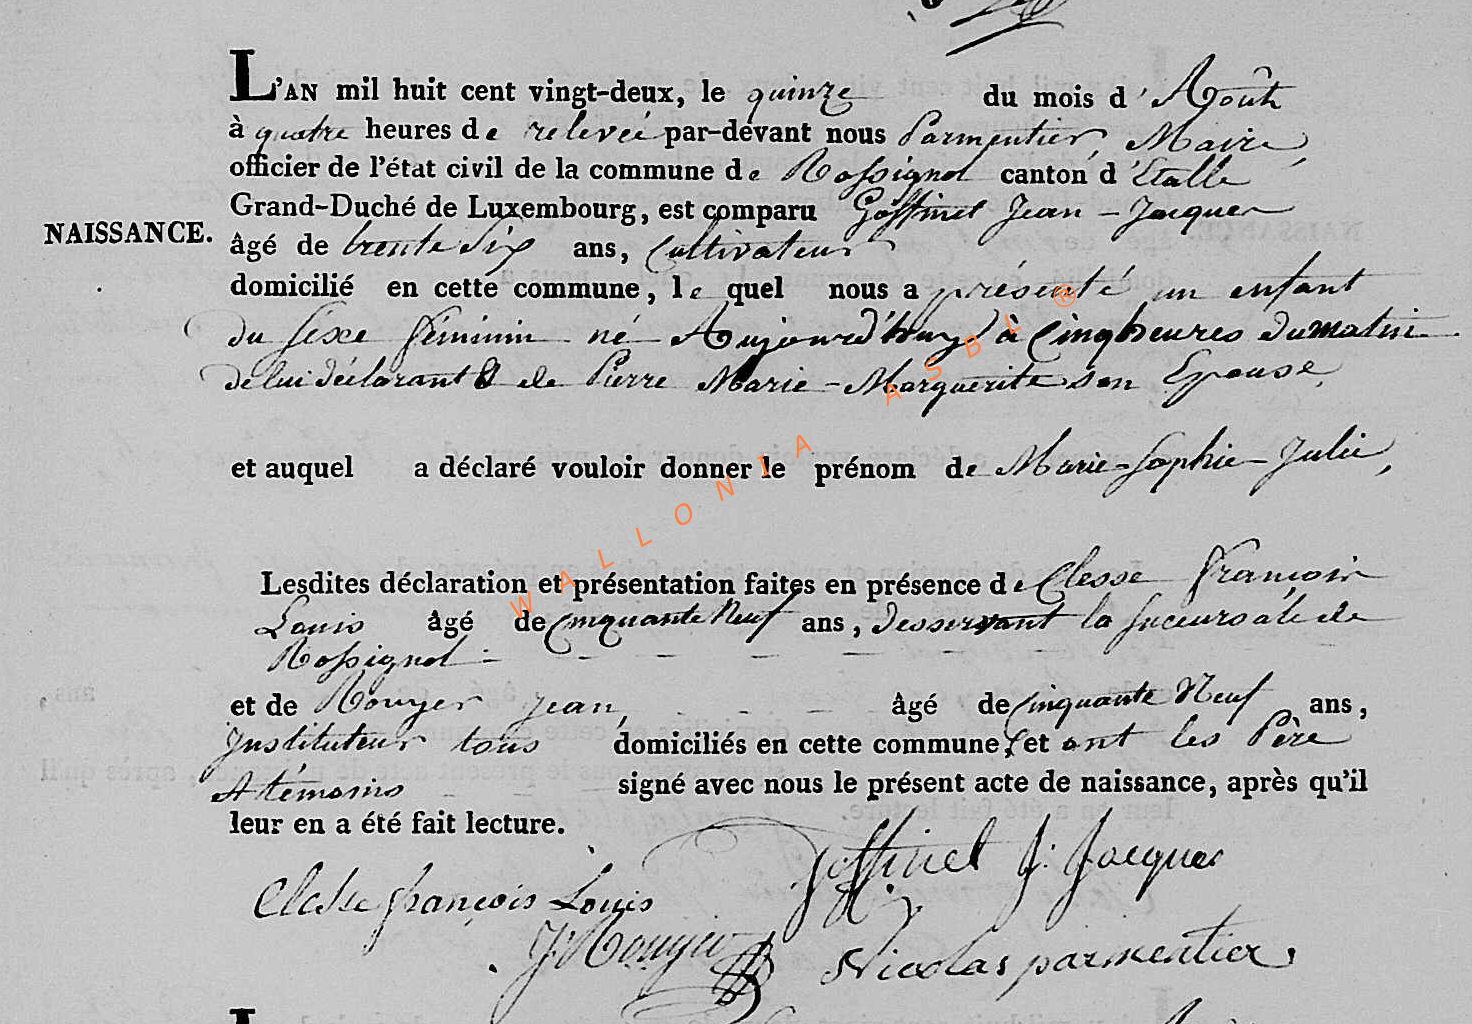 L'AN mil huit cent vingt-deux, le quinze du mois d'Août
à quatre heures de relevée par-devant nous Parmentier, Maire,
officier de l'état civil de la commune de Rossignol canton d'Etalle
Grand-Duché de Luxembourg, est comparu Goffinet Jean-Jacques
NAISSANCE.
âgé de trente Six ans, Cultivateur
domicilié en cette commune, le quel nous a présenté un enfant
du sexe féminin né Aujourd'huy à Cinq heures du matin
de lui déclarant & de Pierre Marie-Marguerite son Epouse,
et auquel a déclaré vouloir donner le prénom de Marie-Sophie-Julie,
Lesdites déclaration et présentation faites en présence de Clesse François
Louis âgé de Cinquante Neuf ans, desservant la succursale de
Rossignol
et de Rouyer Jean, âgé de Cinquante Neuf ans,
Instituteur tous domiciliés en cette commune, et ont les Père
et témoins signé avec nous le présent acte de naissance, après qu'il
leur en a été fait lecture.
Goffinet J. Jacques
Clesse françois Louis
J. Rouyer
Nicolas parmentier
WALLONIA ASBL ®